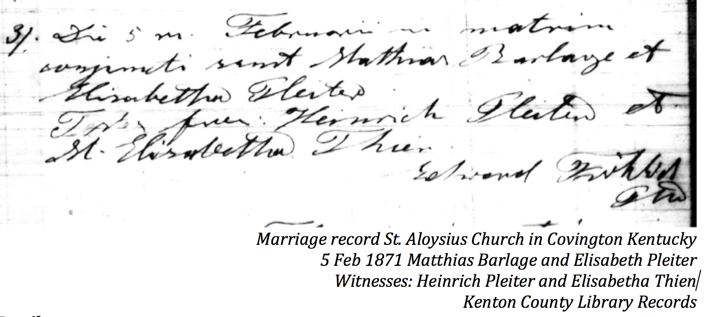 31. Die 5 m. Februarii in matrim
conjuncti sunt Mathias Barlage et
Elisabetha Pleiter
Testes fuer. Heinrich Pleiter et
M. Elisabetha Thien
Edward
Marriage record St. Aloysius Church in Covington Kentucky
5 Feb 1871 Matthias Barlage and Elisabeth Pleiter
Witnesses: Heinrich Pleiter and Elisabetha Thien
Kenton County Library Records